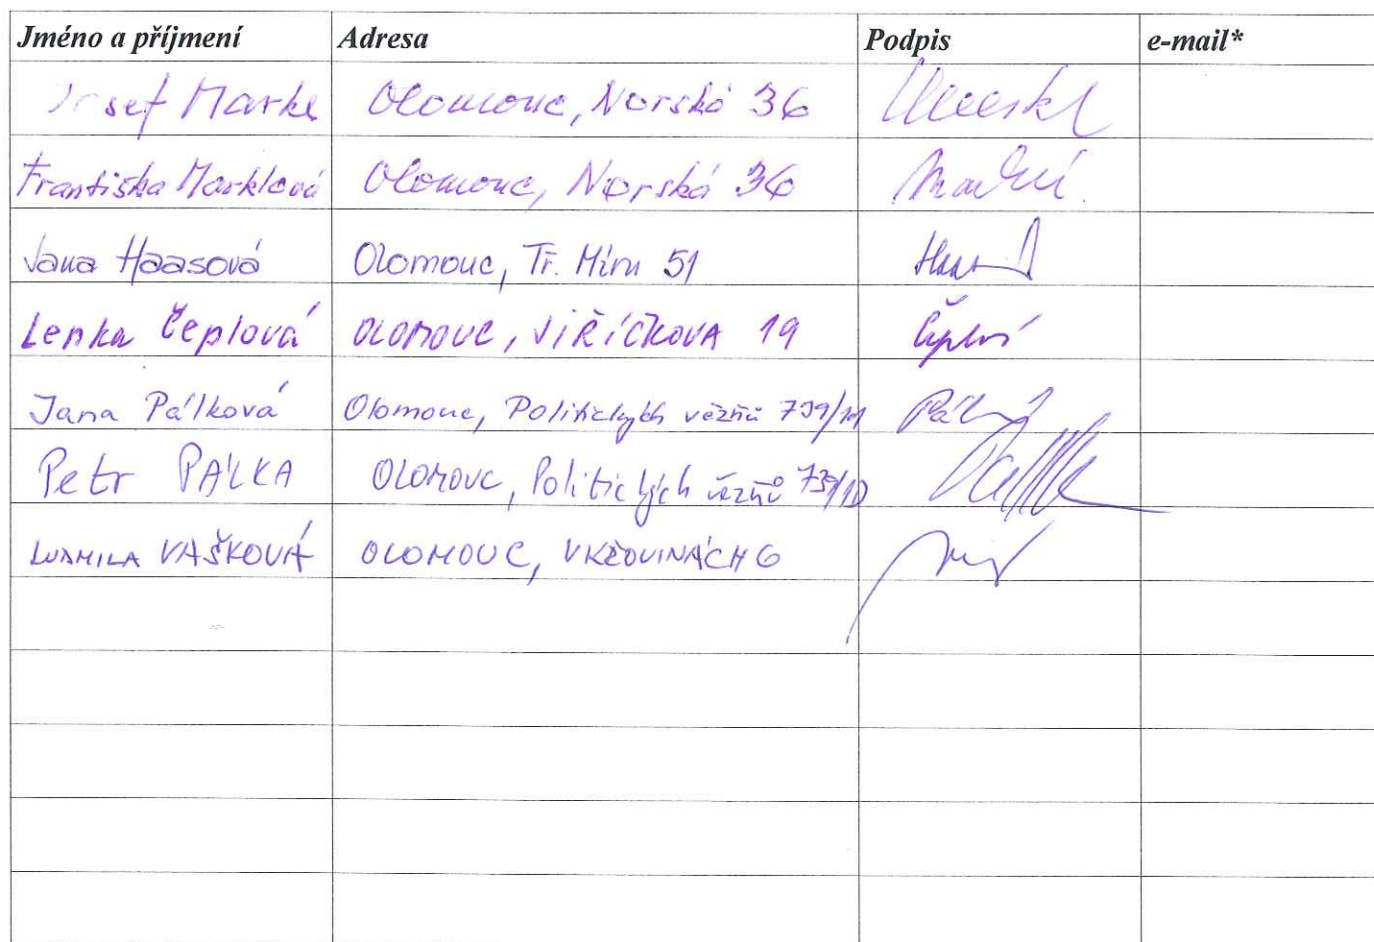 Jméno a příjmení Adresa Podpis e-mail*
Josef Markl Olomouc, Norská 36
Františka Marklová Olomouc, Norská 36
Jana Haasová Olomouc, Tř. Míru 51
Lenka Čeplová OLOMOUC, JIŘÍČKOVA 19
Jana Pálková Olomouc, Politických vězňů
Petr PÁLKA OLOMOUC, Politických vězňů
LUDMILA VAŠKOVÁ OLOMOUC, V KŘOVINÁCH 6